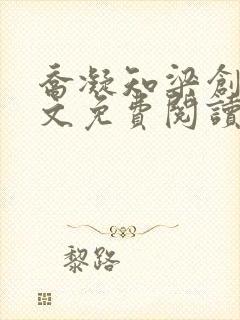 喬凝知梁創
文免費閱讀
黎路